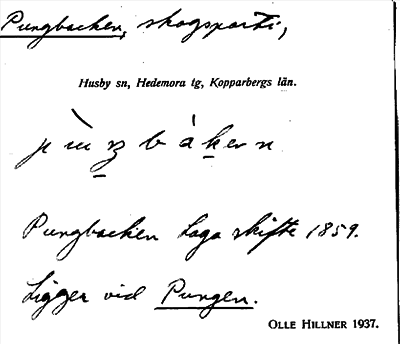 Pungbacken, skogsparti,
Husby sn, Hedemora tg, Kopparbergs län.
Pungbacken Laga skifte 1859.
Ligger vid Pungen.
OLLE HILLNER 1937.